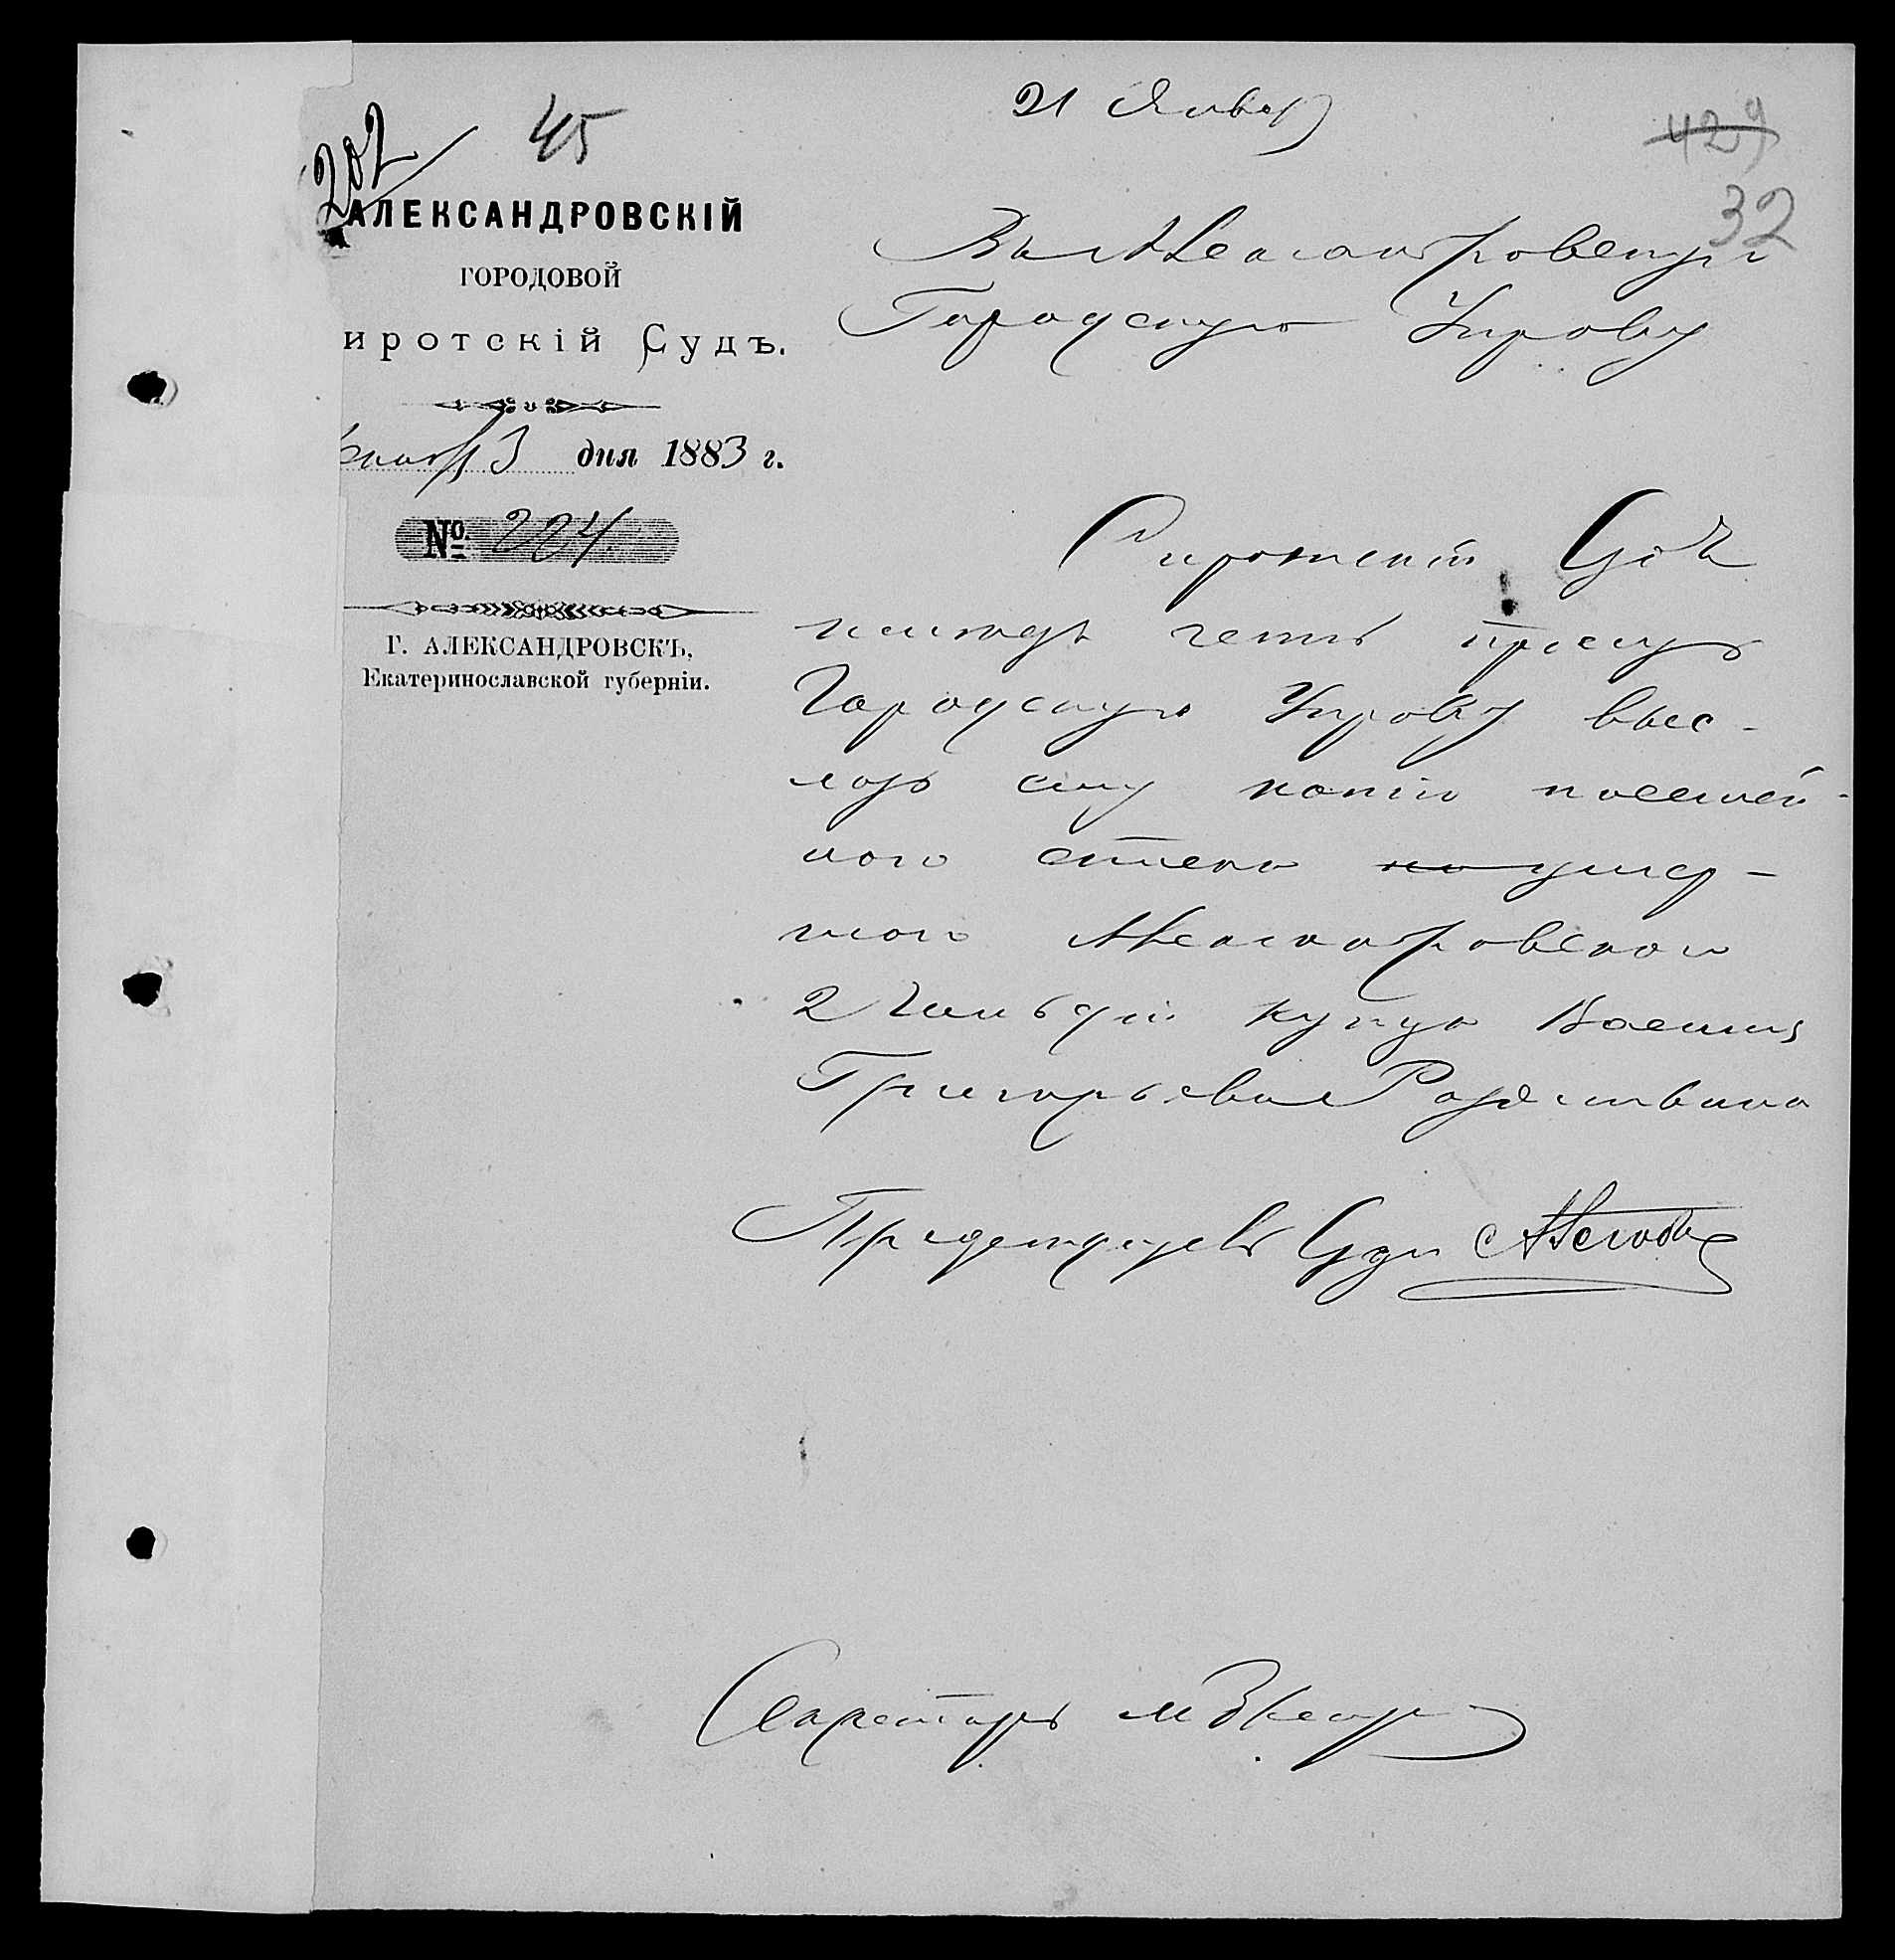 21 Январ
45
202
429
32
АЛЕКСАНДРОВСКІЙ
ГОРОДОВОЙ
иротскій Судъ.
3 дня 1883 г.
№ 224.
Г. АЛЕКСАНДРОВСКЪ,
Екатеринославской губерніи.
Въ Александровскую
Городскую Управу
Сиротскій Судъ
симъ честь просить
Городскую Управу выс-
лать ему копію посемей-
наго списка умер-
шаго Александровскаго
2 Гильдіи купца Василія
Григорьева
Предсѣдатель Суда
Секретарь